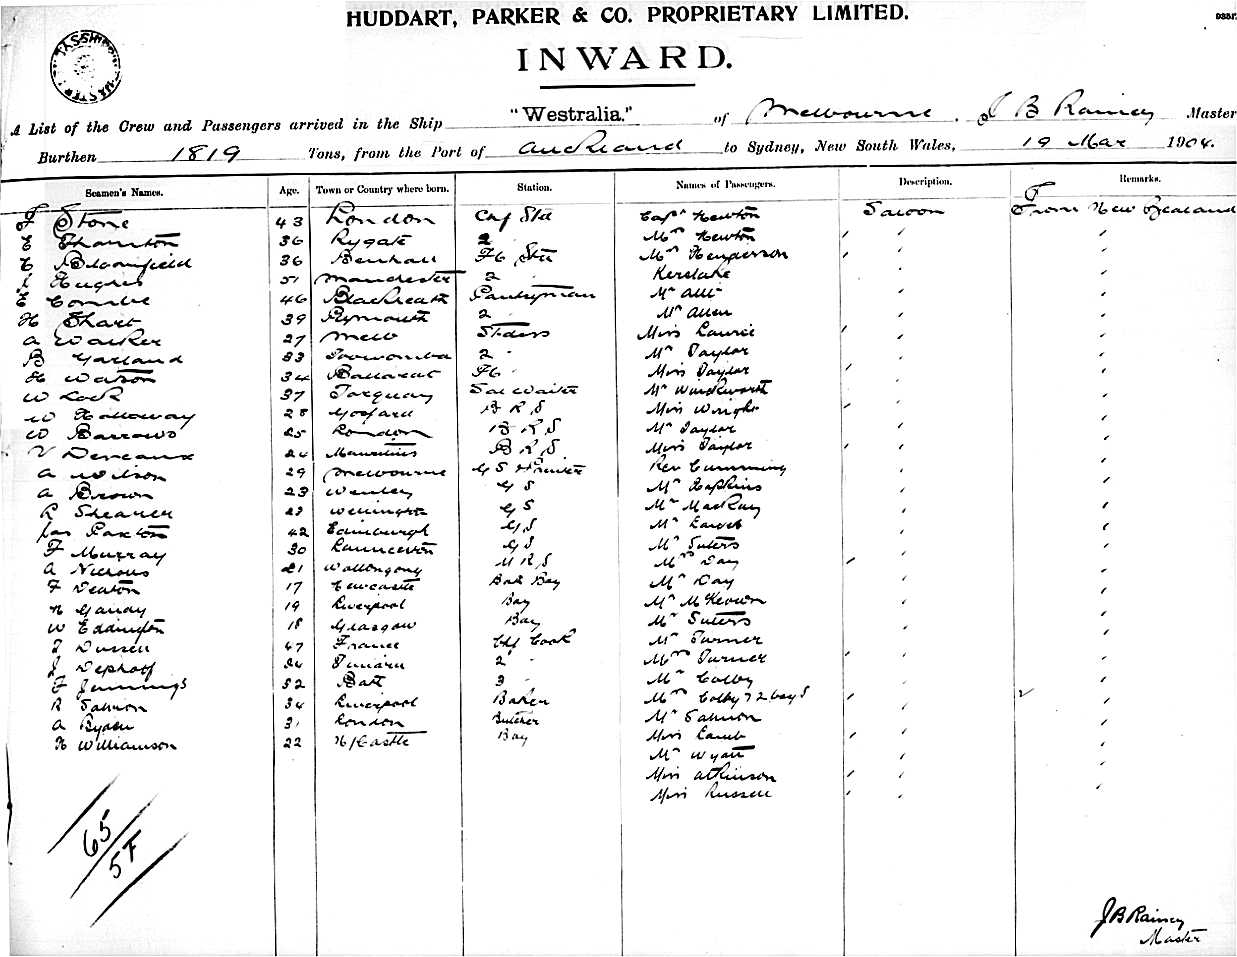 HUDDART, PARKER & CO. PROPRIETARY LIMITED.
INWARD.
A List of the Crew and Passengers arrived in the Ship "Westralia." of Melbourne, J B Rainey Master
Burthen 1819 Tons, from the Port of Auckland to Sydney, New South Wales, 19 Mar 1904.
Seamen's Names. Age. Town or Country where born. Station. Names of Passengers. Description. Remarks.
F Stone 43 London Capt Newton Saloon From New Zealand
E Thornton 36 Rygate 2 Mrs Newton " "
E Bloomfield 36 Benhall Mrs Henderson " "
Hughes 51 Manchester 2 Kerslake " "
E Combe 46 Blackheath Pantryman Mr " "
H Short 39 Plymouth 2 Mr Allen " "
A Walker 27 Melb Miss Laurie " "
B Garland 33 Toowomba 2 Mr Taylor " "
H Watson 34 Ballarat Miss Taylor " "
W Lock 37 Torquay Sal Waiter Mr Winckworth " "
W Holloway 28 Gosford B R S Miss Wright " "
W Barrows 25 London B R S Mr Taylor " "
V 24 Mauritius B R S Miss Taylor " "
A Wilson 29 Melbourne G S Rev Cumming " "
A Brown 23 G S Mr Hopkins " "
R Shearer 23 Wellington G S Mr MacKay " "
Jas Paxton 42 Edinburgh G S Mr " "
F Murray 30 Launceston G S Mr Suters " "
A Nichols 21 Wollongong M R S Mrs Day " "
F Deaton 17 Newcastle Bar Boy Mr Day " "
H Gandy 19 Liverpool Bay Mr McKeown " "
W Eddington 18 Glasgow Bay Mr Suters " "
47 France Chf Cook Mr Turner " "
J 24 Timaru 2 Mrs Turner " "
F Jennings 52 3 Mr Colby " "
R Salmon 34 Liverpool Baker Mrs Colby & 2 boys " 2 "
A Ryder 31 London Butcher Mr Salmon " "
H Williamson 22 N/Castle Bay Miss Lamb " "
Mr Wyatt " "
Miss Atkinson " "
Miss Russell " "
65
5F
J B Rainey
Master